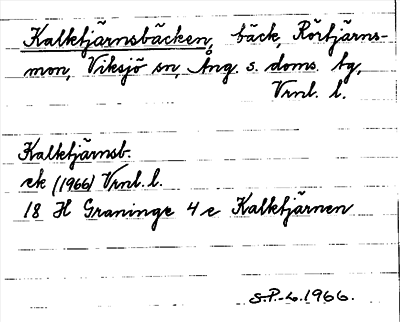 Kalktjärnsbäcken, bäck, Rörtjärns-
mon, Viksjö sn, Ång. s. doms. tg,
Vrnl. l.
Kalktjärnsb.
ek (1966) Vrnl. l.
18 H Graninge 4 e Kalktjärnen
S.P.-L. 1966.